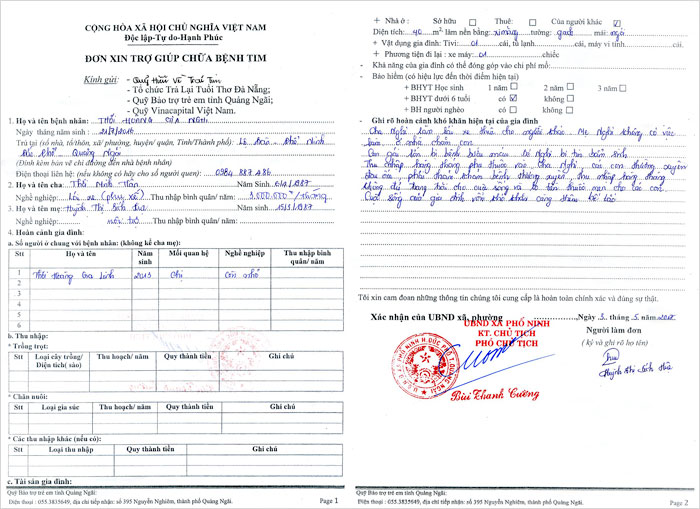 CỘNG HÒA XÃ HỘI CHỦ NGHĨA VIỆT NAM
Độc lập-Tự do-Hạnh Phúc
ĐƠN XIN TRỢ GIÚP CHỮA BỆNH TIM
Kính gửi: - Quỹ Hữu Về Trái Tim
- Tổ chức Trả Lại Tuổi Thơ Đà Nẵng;
- Quỹ Bảo trợ trẻ em tỉnh Quảng Ngãi;
- Quỹ Vinacapital Việt Nam.
1. Họ và tên bệnh nhân: THÁI HOÀNG GIA NGHI
Ngày tháng năm sinh:
Trú tại (số nhà, tổ/thôn, xã/ phường, huyện/ quận, Tỉnh/Thành phố): Phổ Ninh
Đức Phổ Quảng Ngãi
(Đính kèm bản vẽ chỉ đường đến nhà bệnh nhân)
Điện thoại liên hệ: (nếu không có hãy cho số người quen): 0984 887 486
2. Họ và tên cha: Thái Minh Tân Năm Sinh: 1987
Nghề nghiệp: Lái xe (phụ xế) Thu nhập bình quân/ năm: 3.000.000đ/tháng
3. Họ và tên mẹ: Huỳnh Thị Bích Lưu Năm sinh: 1987
Nghề nghiệp: nội trợ Thu nhập bình quân/ năm:
4. Hoàn cảnh gia đình:
a. Số người ở chung với bệnh nhân: (không kể cha mẹ):
Stt Họ và tên Năm sinh Mối quan hệ Nghề nghiệp Thu nhập bình quân/ năm
1 Thái Hoàng Gia Linh 2013 Chị Còn nhỏ
2
3
4
5
6
b. Thu nhập:
* Trồng trọt:
Stt Loại cây trồng/ Diện tích( sào) Thu hoạch/ năm Quy thành tiền Ghi chú
* Chăn nuôi:
Stt Loại gia súc Thu hoạch/ năm Quy thành tiền Ghi chú
* Các thu nhập khác (nếu có):
Stt Loại thu nhập Quy thành tiền Ghi chú
c. Tài sản gia đình:
Quỹ Bảo trợ trẻ em tỉnh Quảng Ngãi:
Điện thoại : 055.3835649, địa chỉ tiếp nhận: số 395 Nguyễn Nghiêm, thành phố Quảng Ngãi. Page 1
+ Nhà ở : Sở hữu Thuê: Của người khác
Diện tích: 40 m² làm nền bằng: ximăng tường: gạch mái: ngói
+ Vật dụng gia đình: Tivi: 01 cái, tủ lạnh cái, máy vi tính cái.
+ Phương tiện đi lại: Xe máy: 01 chiếc
- Khả năng của gia đình có thể đóng góp vào chi phí mổ:
- Bảo hiểm (có hiệu lực đến thời điểm hiện tại)
+ BHYT Học sinh 1 năm 2 năm 3 năm
+ BHYT dưới 6 tuổi có không
+ BH người nghèo có không
- Ghi rõ hoàn cảnh khó khăn hiện tại của gia đình
Cha Nghi làm lái xe thuê cho người khác. Mẹ Nghi không có việc
làm ở nhà chăm con.
Con gái lớn bị bệnh bé Nghi bị tim bẩm sinh
Thu nhập hàng tháng phụ thuộc vào Cha Nghi, cái con thường xuyên
đau ốm, phải thăm khám bệnh thường xuyên, thu nhập hàng tháng
không đủ trang trải cho cuộc sống và tô tiền thuốc men cho các con.
Cuộc sống của gia đình vốn khó khăn càng thêm bế tắc
Tôi xin cam đoan những thông tin chúng tôi cung cấp là hoàn toàn chính xác và đúng sự thật.
Ngày 3 tháng 5 năm
Xác nhận của UBND xã, phường
UBND XÃ PHỔ NINH
KT. CHỦ TỊCH
PHÓ CHỦ TỊCH
Người làm đơn
( ký và ghi rõ họ tên)
Bùi Thanh Cường
Quỹ Bảo trợ trẻ em tỉnh Quảng Ngãi:
Điện thoại : 055.3835649, địa chỉ tiếp nhận: số 395 Nguyễn Nghiêm, thành phố Quảng Ngãi. Page 2